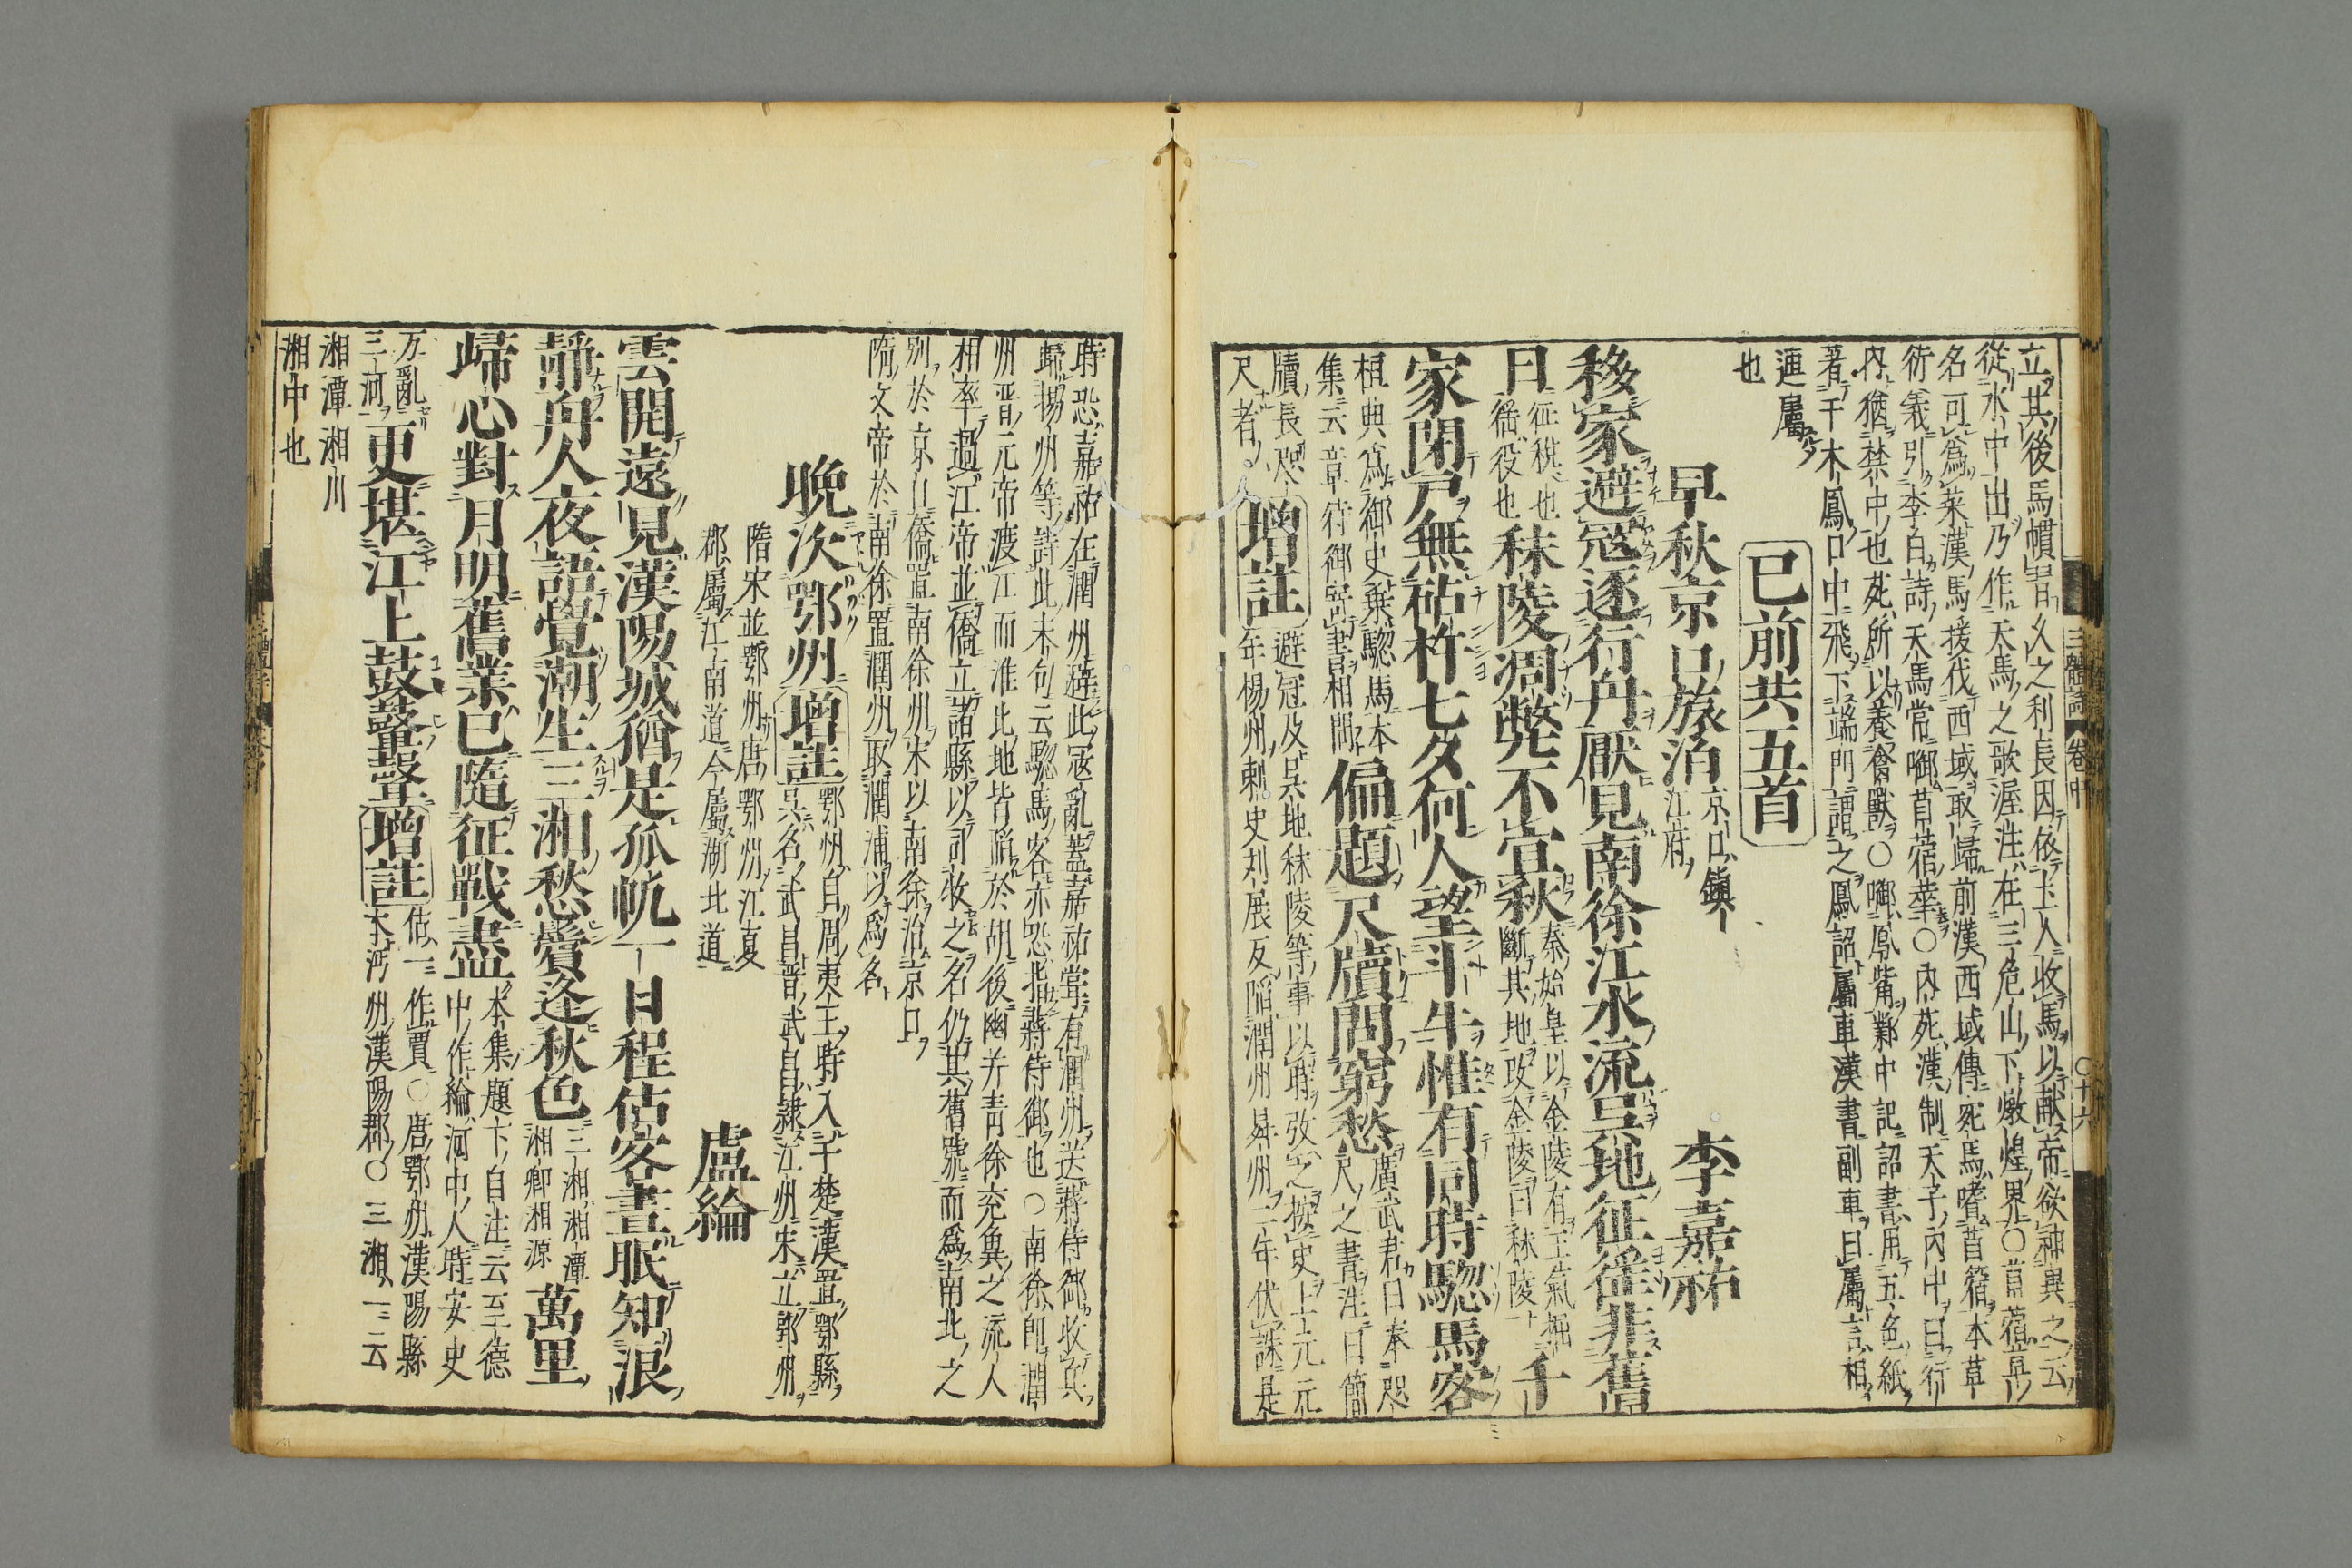 三體詩 卷中 〇十六
立其後馬慣習久之利長因依土人收馬以献帝欲神異之云
從水中出乃作天馬之歌渥洼在三危山下燉煌界〇苜蓿是
名可為菜漢馬援伐西域取歸前漢西域傳宛馬嗜苜蓿本草
衍義引李白詩天馬常啣苜蓿華〇内苑漢制天子内中曰行
内猶禁中也苑所以養禽獸〇啣鳳嘴鄴中記詔書用五色紙
著于木鳳口中飛下端門謂之鳳詔屬車漢書副車曰屬言相
連屬
也
已前共五首
早秋京口旅泊 京口鎮江府 李嘉祐
移家避寇逐行舟厭見南徐江水流吳地征徭非舊
日 征税也徭役也 秣陵凋弊不宜秋 秦始皇以金陵有王氣掘斷其地改金陵曰秣陵 千
家閉戸無砧杵七夕何人望斗牛惟有同時驄馬客
桓典為御史乗驄馬本集云章侍御寄書相問 偏題尺牘問窮愁 廣武君曰奉咫尺之書注曰簡
牘長咫尺者 增註 避冦及吳地秣陵等事以時攷之按史上元元年楊州刺史刘展反陷潤州昇州二年伏誅是
時恐嘉祐在潤州避此寇亂蓋嘉祐嘗有潤州送蔣侍御收兵
歸揚州等詩此末句云驄馬客亦恐指蔣侍御也〇南徐即潤
州晋元帝渡江而淮北地皆陷於胡後幽并青徐兖兾之流人
相率過江帝並僑立諸縣以司牧之名仍其舊號而為南北之
別於京口僑置南徐州宋以南徐治京口
隋文帝於南徐置潤州取潤浦以為名
晩次鄂州 增註 鄂州自周夷王時入于楚漢置鄂縣吳名武昌晋武昌隸江州宋立郢州
隋宋並鄂州唐鄂州江夏郡屬江南道今屬湖北道 盧綸
雲開遠見漢陽城猶是孤帆一日程估客晝眠知浪
靜舟人夜語覺潮生三湘愁鬢逢秋色 三湘湘潭湘郷湘源 萬里
歸心對月明舊業已隨征戰盡 本集題下自注云至德中作綸河中人時安史
万亂三河 更堪江上鼓鼙聲 增註 估一作賈〇唐鄂州漢陽縣本沔州漢陽郡〇三湘一云
湘潭湘川
湘中也